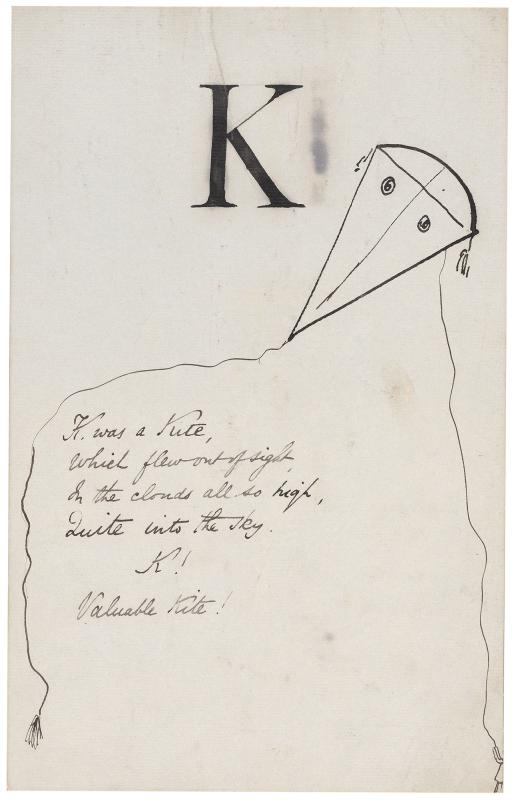 K
K. was a Kite,
Which flew out of sight,
In the clouds all so high,
Quite into the sky.
K!
Valuable Kite!